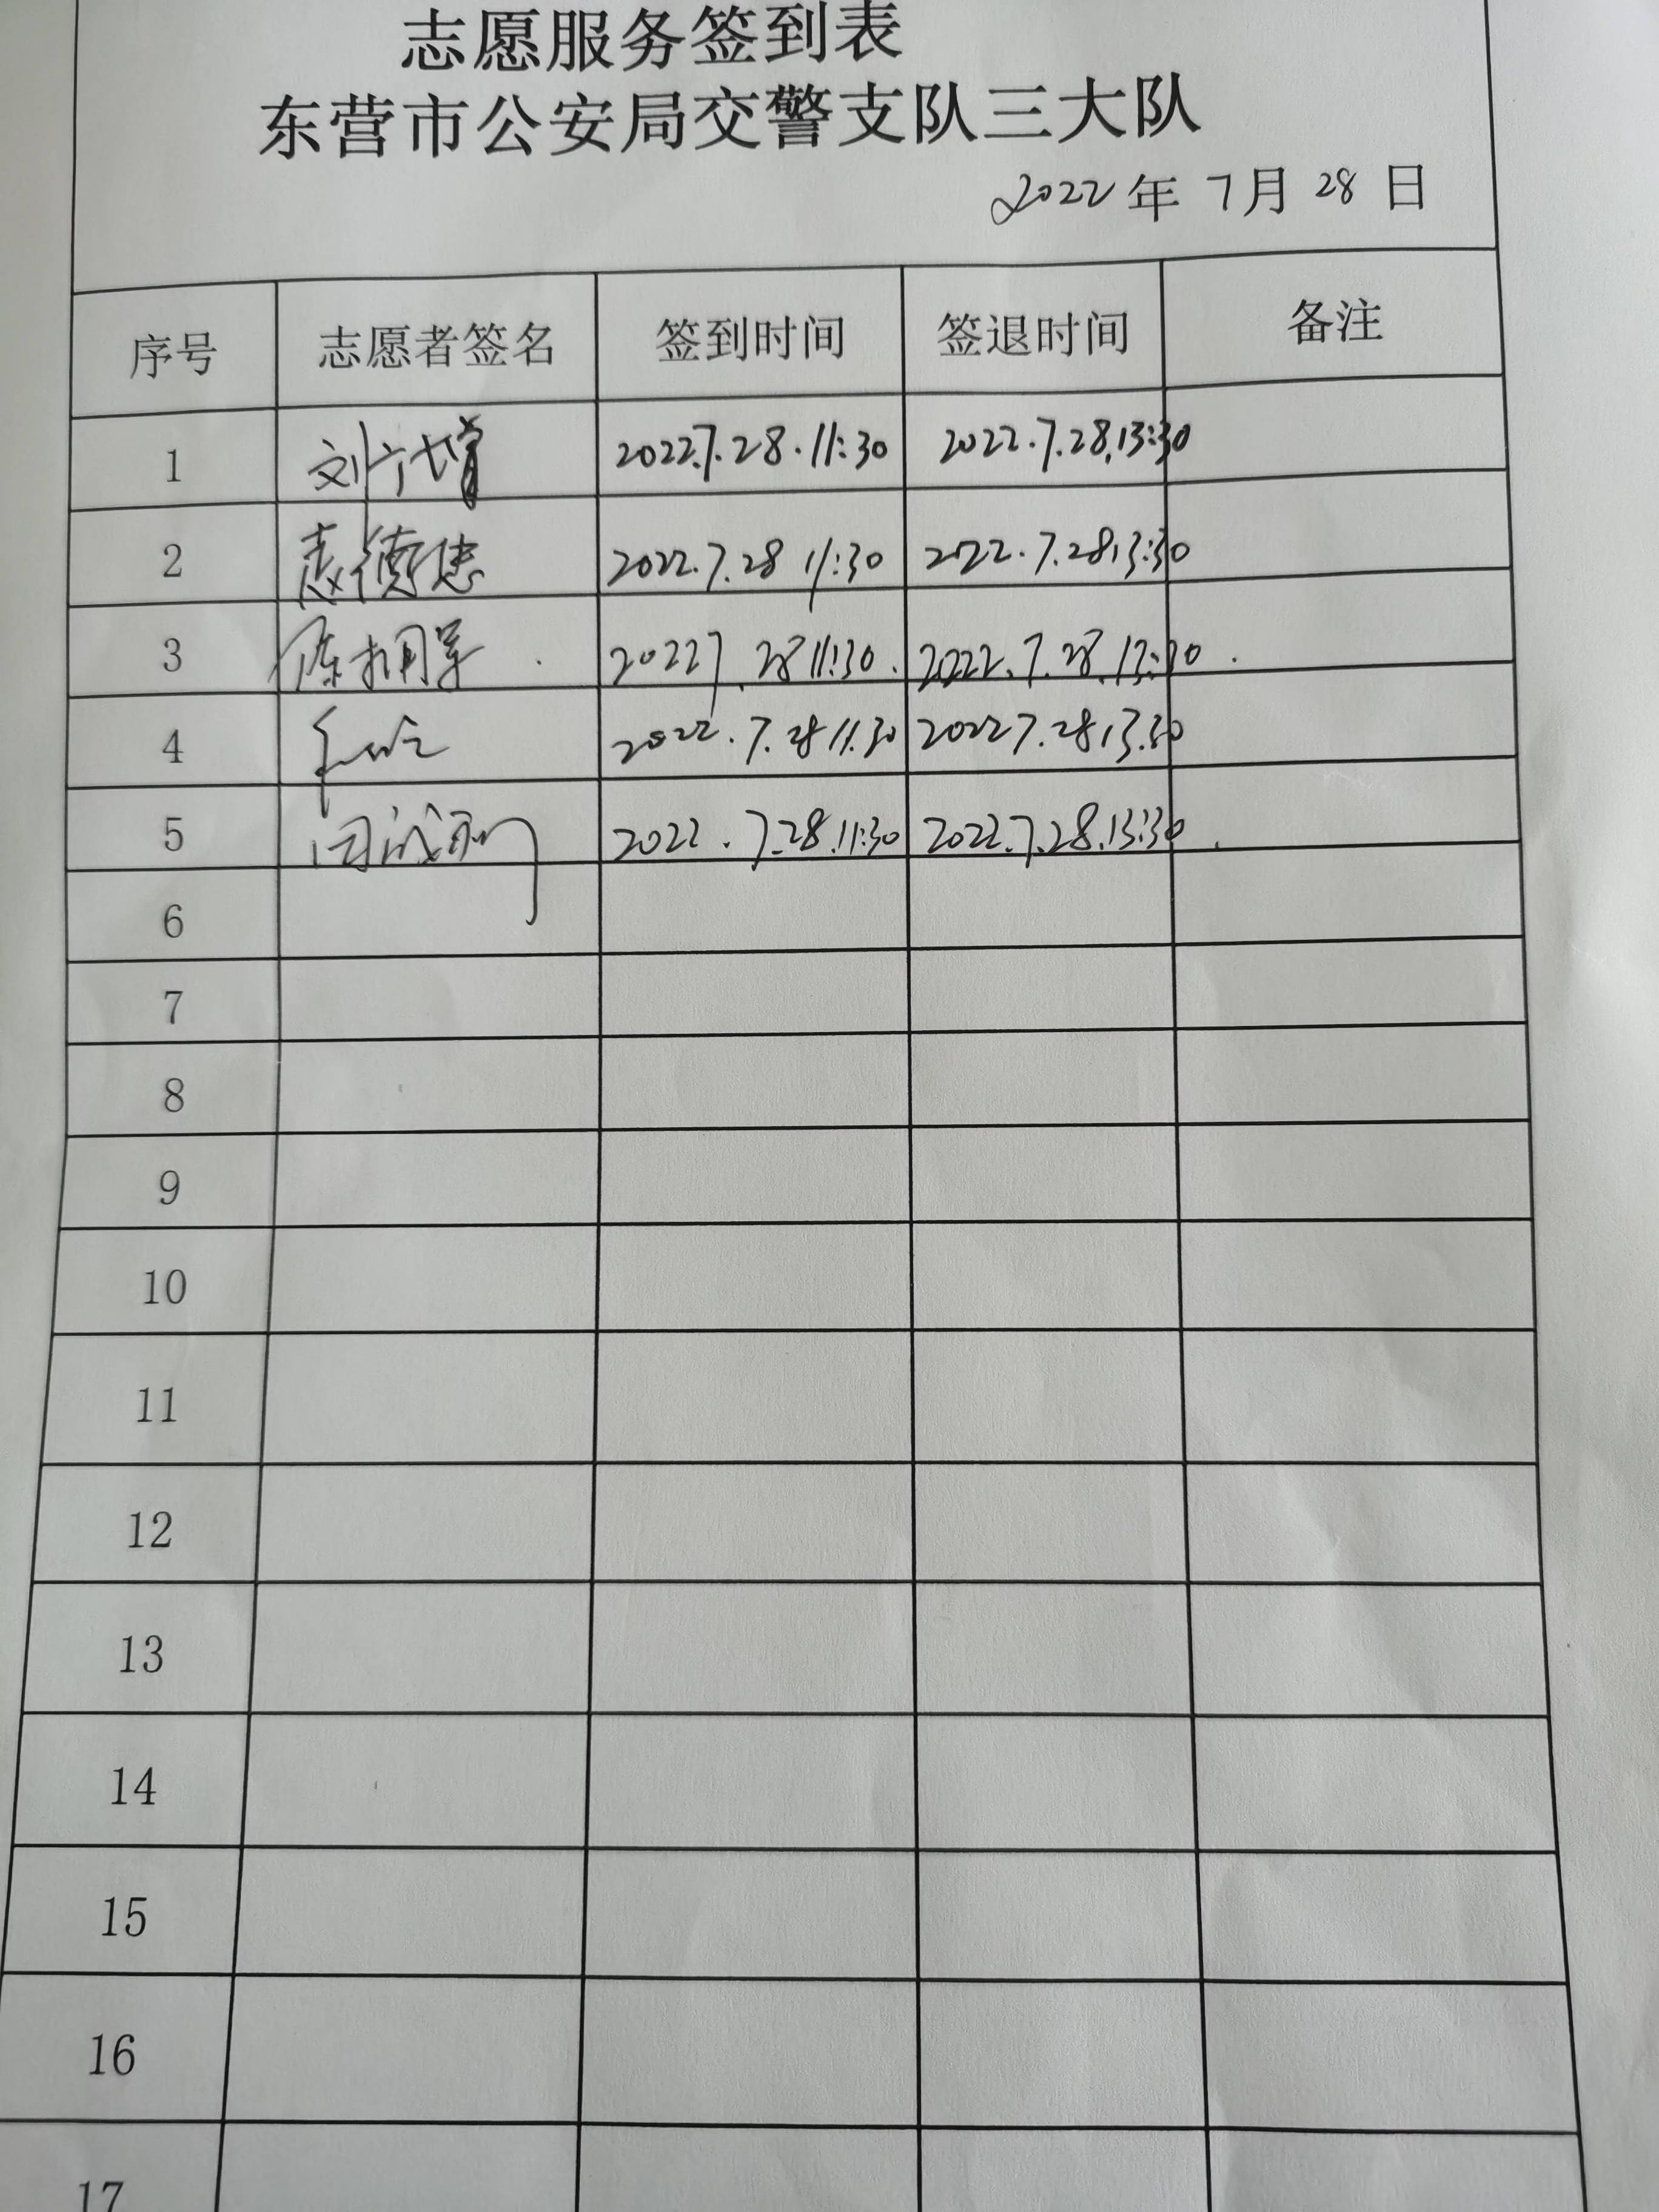 志愿服务签到表
东营市公安局交警支队三大队
2022年7月28日
序号 志愿者签名 签到时间 签退时间 备注
1 刘广增 2022.7.28.11:30 2022.7.28.13:30
2 2022.7.28 11:30 2022.7.28 13:30
3 2022 7.28 11:30. 2022.7.28.13:30.
4 2022.7.28 11:30 2022 7.28 13.30
5 2022.7.28.11:30 2022.7.28.13:30.
6
7
8
9
10
11
12
13
14
15
16
17